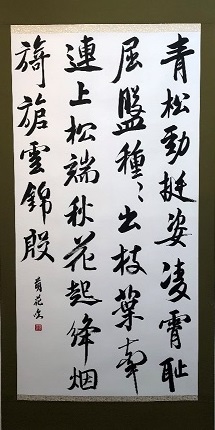 青松勁挺姿凌霄恥
屈盤種〻出枝葉牽
連上松端秋花起絳烟
旖旎雲錦殷
菊花